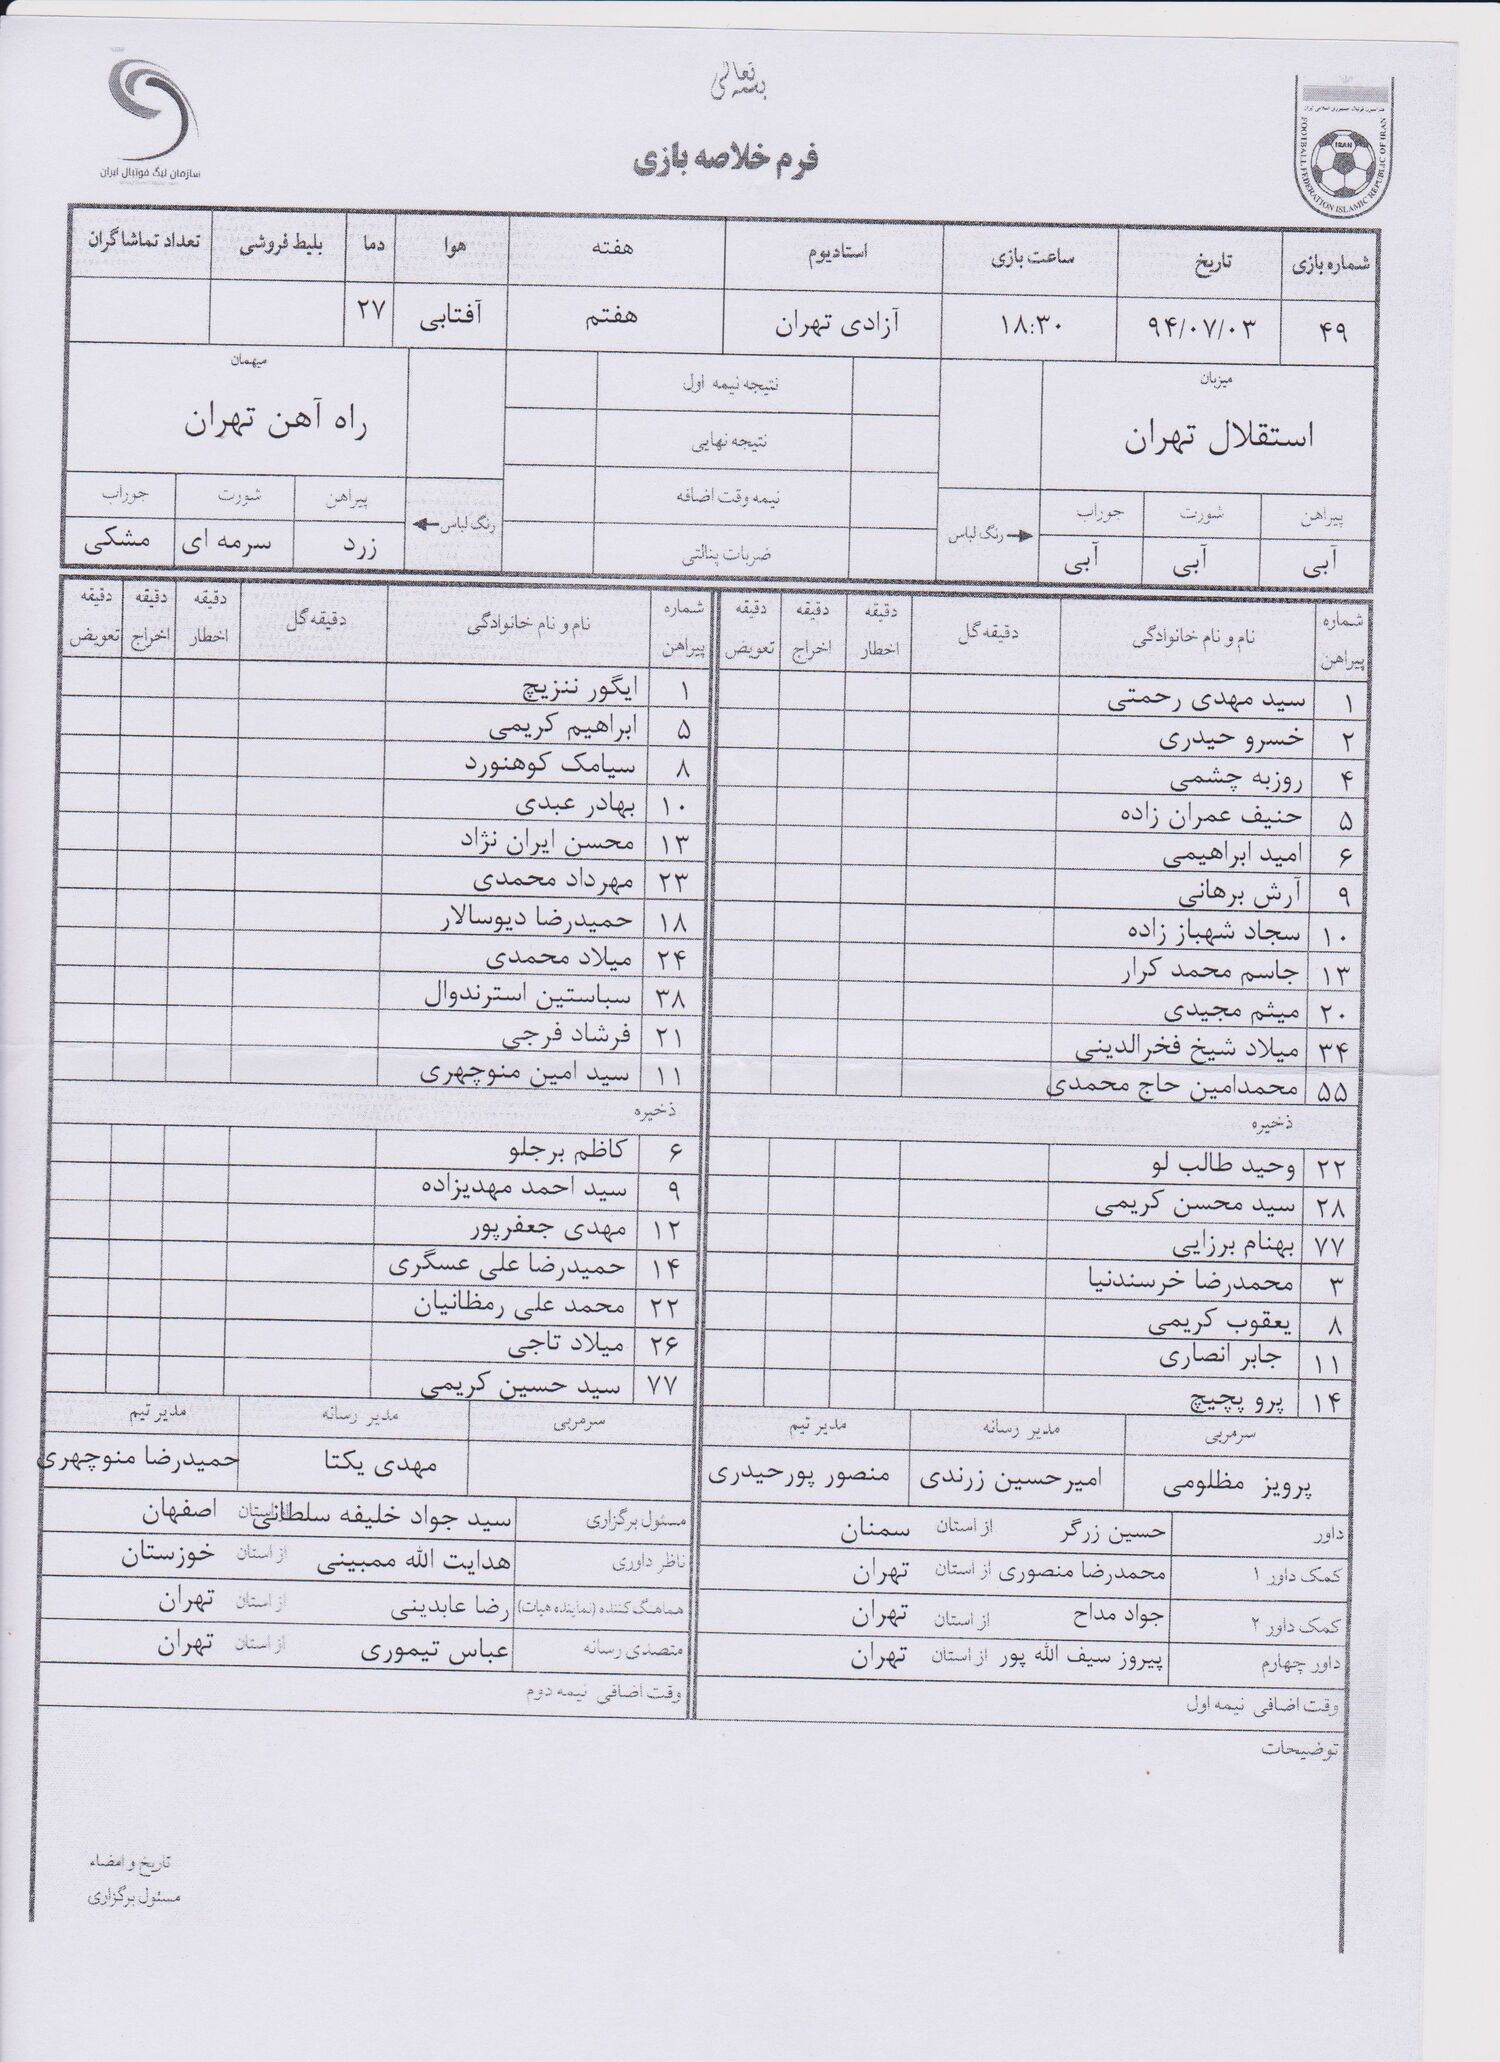 بسمه تعالی
سازمان لیگ فوتبال ایران
فدراسیون فوتبال جمهوری اسلامی ایران
IRAN
FOOTBALL FEDERATION ISLAMIC REPUBLIC OF IRAN
فرم خلاصه بازی
شماره بازی تاریخ ساعت بازی استادیوم هفته هوا دما بلیط فروشی تعداد تماشاگران
۴۹ ۹۴/۰۷/۰۳ ۱۸:۳۰ آزادی تهران هفتم آفتابی ۲۷
میزبان نتیجه نیمه اول میهمان
استقلال تهران نتیجه نهایی راه آهن تهران
پیراهن شورت جوراب نیمه وقت اضافه پیراهن شورت جوراب
آبی آبی آبی رنگ لباس ضربات پنالتی رنگ لباس زرد سرمه ای مشکی
شماره پیراهن نام و نام خانوادگی دقیقه گل دقیقه اخطار دقیقه اخراج دقیقه تعویض شماره پیراهن نام و نام خانوادگی دقیقه گل دقیقه اخطار دقیقه اخراج دقیقه تعویض
۱ سید مهدی رحمتی ۱ ایگور ننزیچ
۲ خسرو حیدری ۵ ابراهیم کریمی
۴ روزبه چشمی ۸ سیامک کوهنورد
۵ حنیف عمران زاده ۱۰ بهادر عبدی
۶ امید ابراهیمی ۱۳ محسن ایران نژاد
۹ آرش برهانی ۲۳ مهرداد محمدی
۱۰ سجاد شهباز زاده ۱۸ حمیدرضا دیوسالار
۱۳ جاسم محمد کرار ۲۴ میلاد محمدی
۲۰ میثم مجیدی ۳۸ سباستین استرندوال
۳۴ میلاد شیخ فخرالدینی ۲۱ فرشاد فرجی
۵۵ محمدامین حاج محمدی ۱۱ سید امین منوچهری
ذخیره ذخیره
۲۲ وحید طالب لو ۶ کاظم برجلو
۲۸ سید محسن کریمی ۹ سید احمد مهدیزاده
۷۷ بهنام برزایی ۱۲ مهدی جعفرپور
۳ محمدرضا خرسندنیا ۱۴ حمیدرضا علی عسگری
۸ یعقوب کریمی ۲۲ محمد علی رمظانیان
۱۱ جابر انصاری ۲۶ میلاد تاجی
۱۴ پرو پچیچ ۷۷ سید حسین کریمی
سرمربی مدیر رسانه مدیر تیم سرمربی مدیر رسانه مدیر تیم
پرویز مظلومی امیرحسین زرندی منصور پورحیدری مهدی یکتا حمیدرضا منوچهری
داور حسین زرگر از استان سمنان مسئول برگزاری سید جواد خلیفه سلطانی از استان اصفهان
کمک داور ۱ محمدرضا منصوری از استان تهران ناظر داوری هدایت الله ممبینی از استان خوزستان
کمک داور ۲ جواد مداح از استان تهران هماهنگ کننده (نماینده هیات) رضا عابدینی از استان تهران
داور چهارم پیروز سیف الله پور از استان تهران متصدی رسانه عباس تیموری از استان تهران
وقت اضافی نیمه اول وقت اضافی نیمه دوم
توضیحات
تاریخ و امضاء
مسئول برگزاری